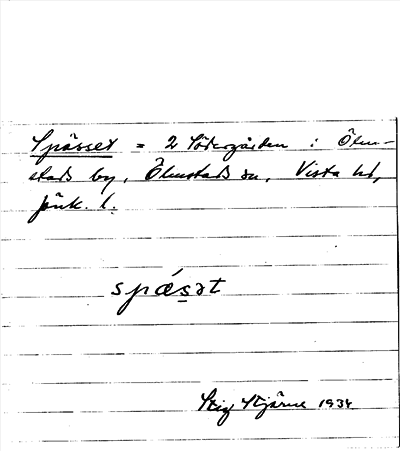 Spässet = 2 Södergården i Ölm-
stads by, Ölmstads sn, Vista hd,
Jönk. l.
spǽs̱ət
Stig Stjärne 1934